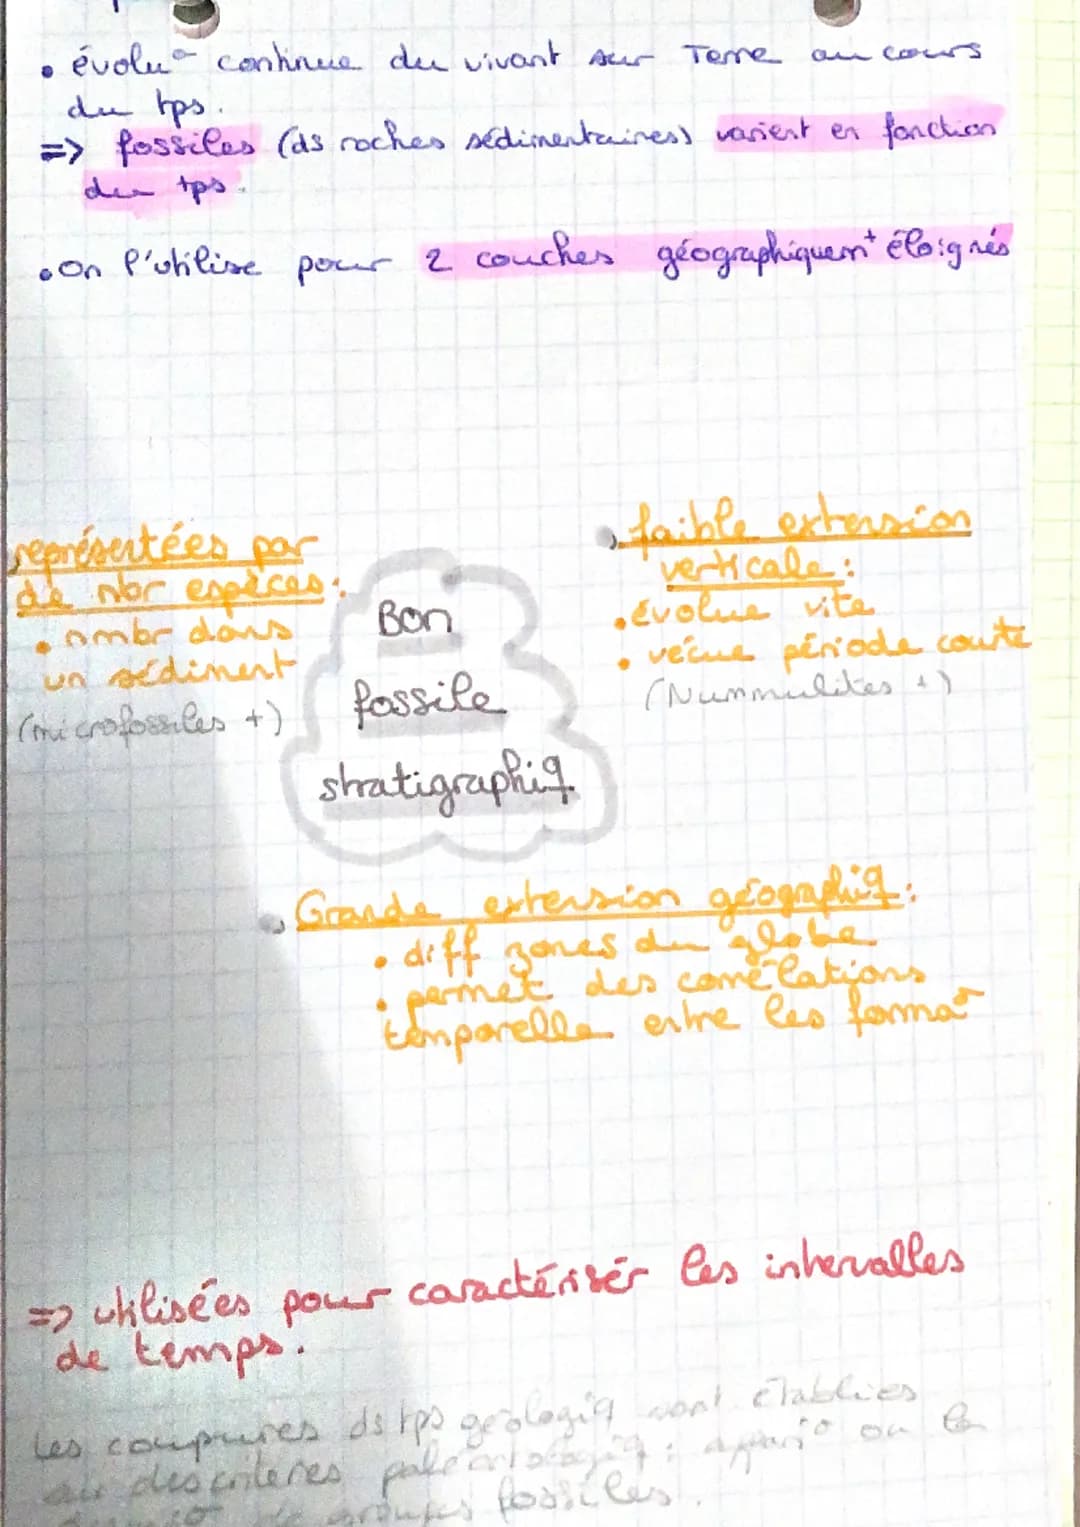 • évolu° continue du vivant sur Terre au cours
du tps.
=> fossiles (ds roches sédimentaires) varient en fonction
du tps.
• On l'utilise pour 2 couches géographiquem+ éloignés
représentées par
de nbr espèces :
• nmbr dans
un sédiment
(microfossiles +)
Bon
fossile
stratigraphiq.
faible extension
verticale :
• évolue vite
• vécue période courte
(Nummulites +)
Grande extension géographiq :
• diff zones du globe
• permet des corrélations
temporelle entre les forma°
=> utilisées pour caractériser les intervalles
de temps.
Les coupures ds tps géologiq sont établies
sur des critères paléontologiq : appari° ou la
de groupes fossiles.